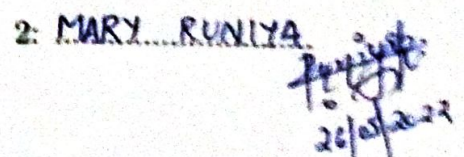 2: MARY.....RUNIYA.
26/05/2022